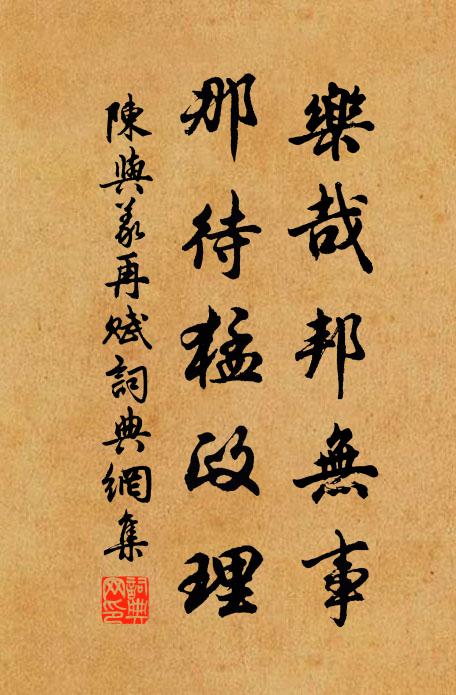 樂哉邦無事
那待猛政理
陳與義再賦詞典網集
詞典网印